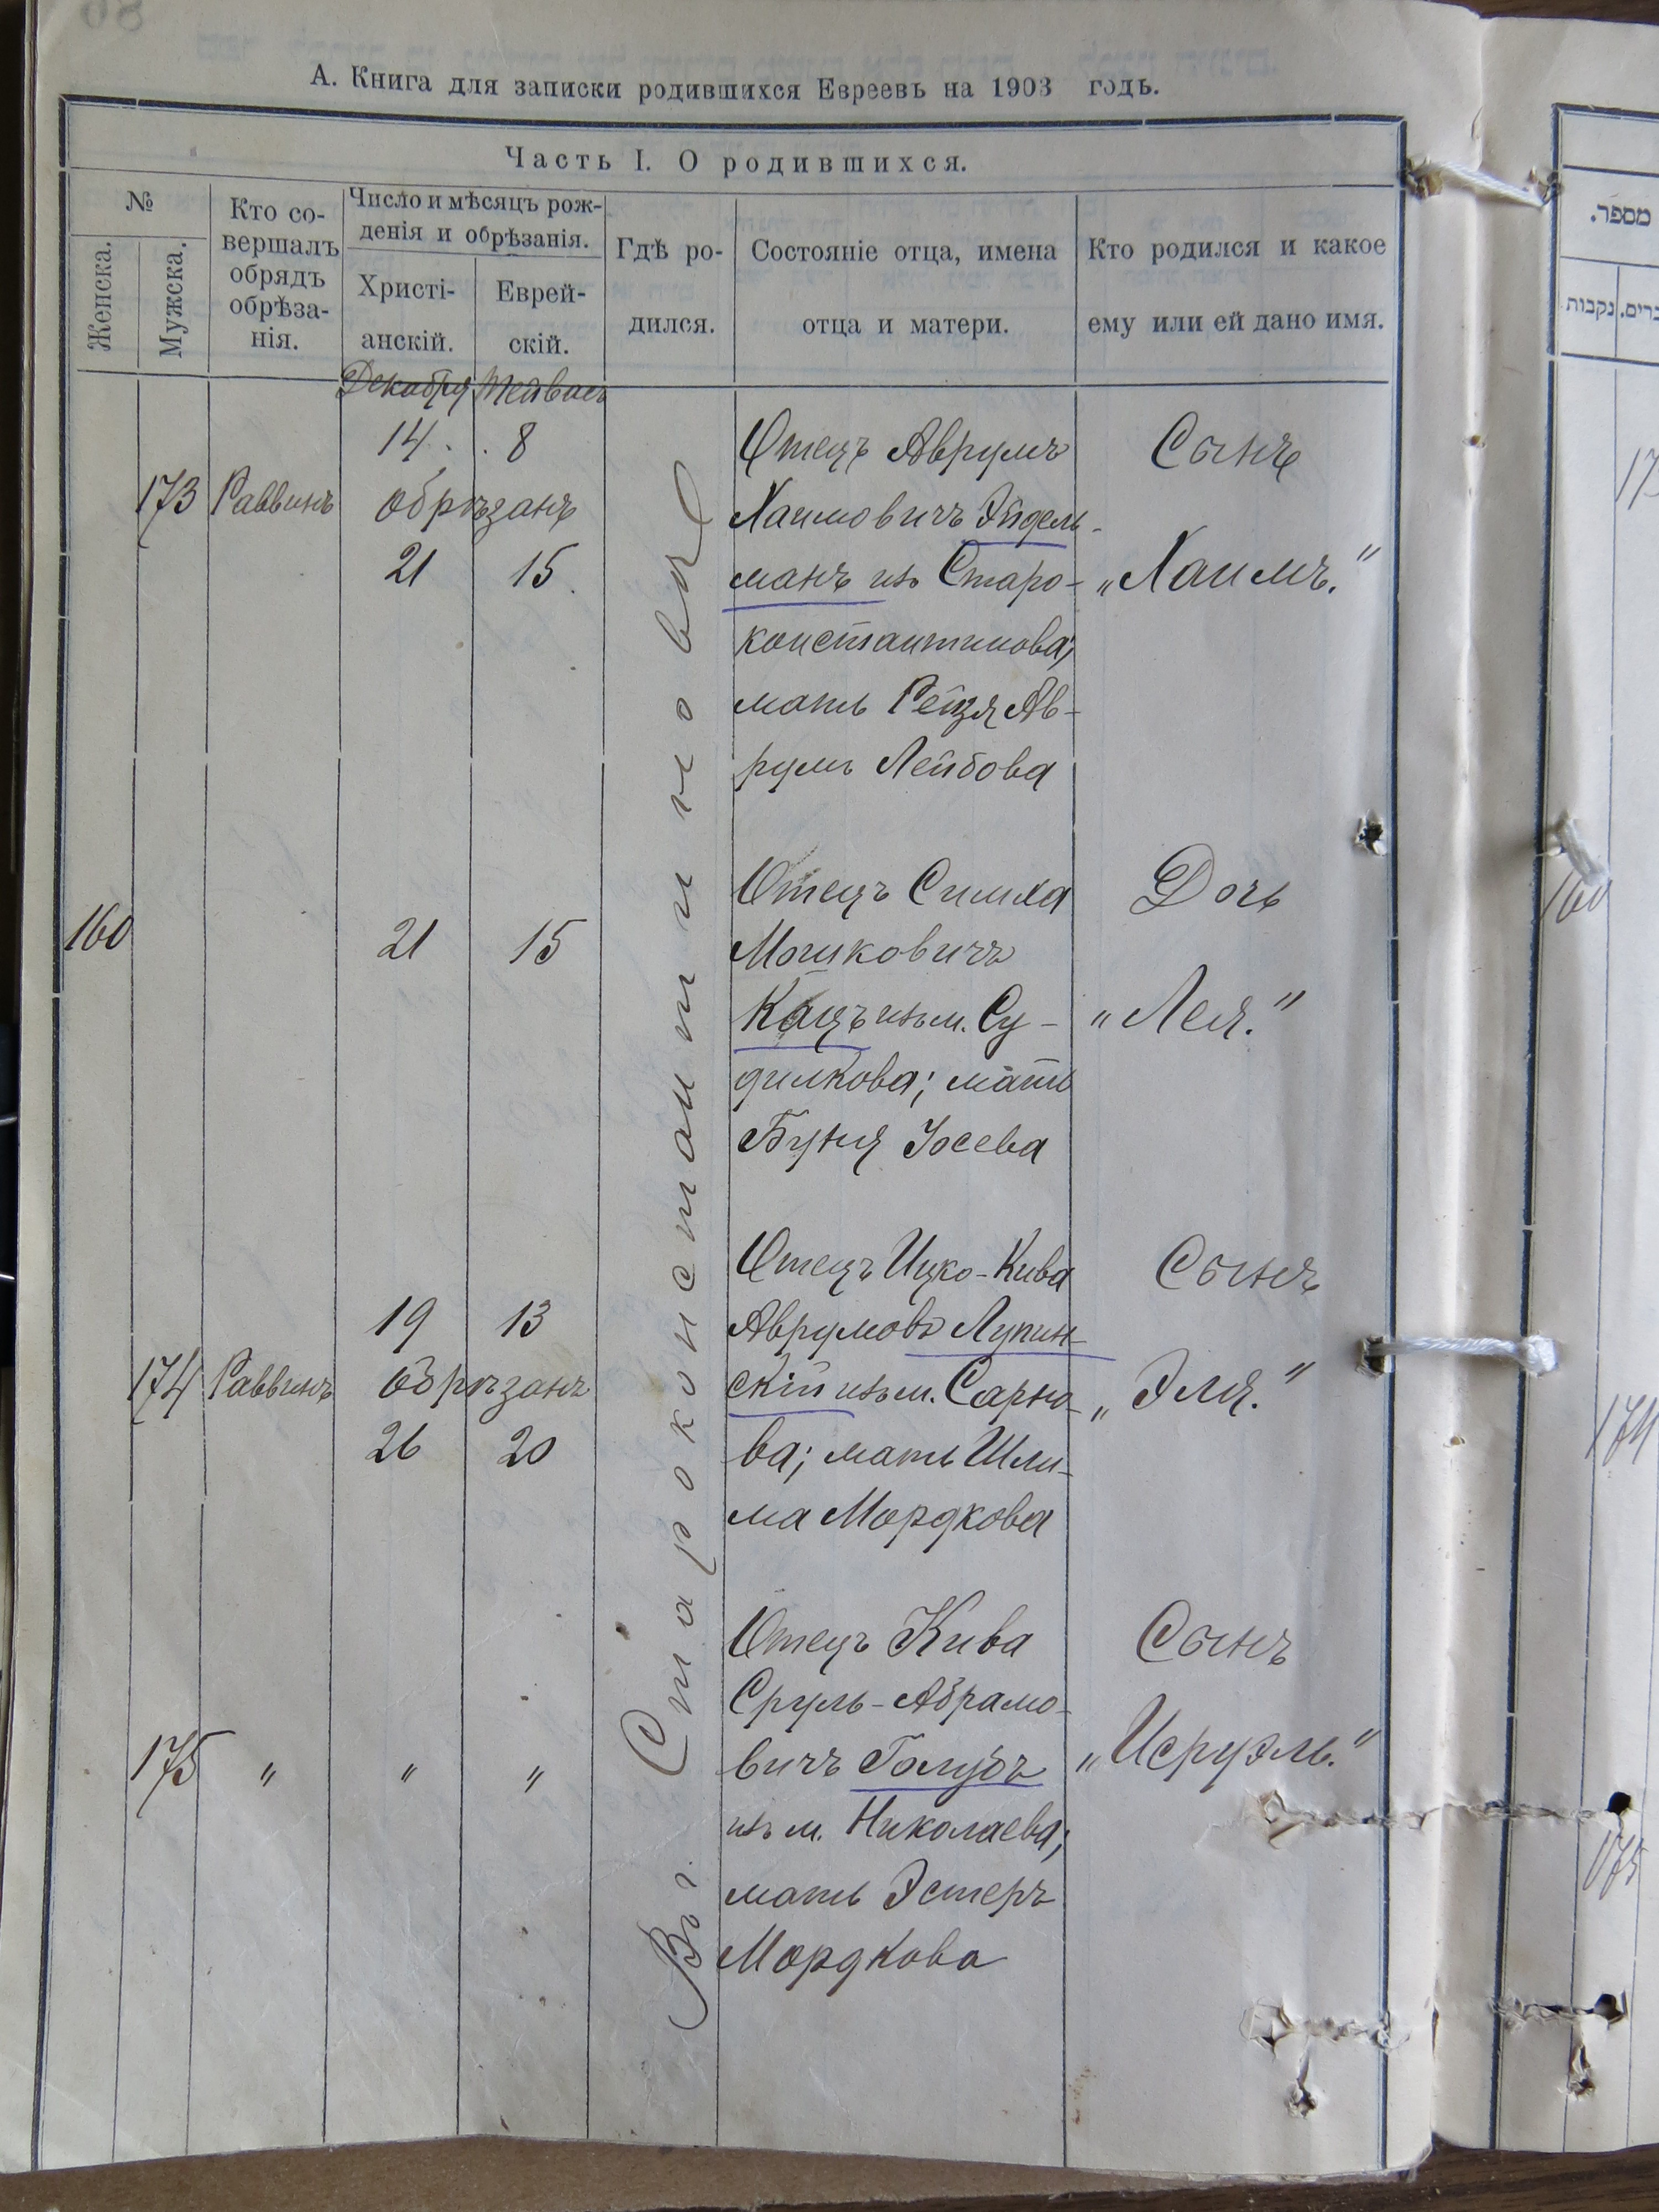 А. Книга для записки родившихся Евреевъ на 1903 годъ.
Часть I. О родившихся.
№
Женска.
Мужска.
Кто со-
вершалъ
обрядъ
обрѣза-
нія.
Число и мѣсяцъ рож-
денія и обрѣзанія.
Христі-
анскій.
Еврей-
скій.
Гдѣ ро-
дился.
Состояніе отца, имена
отца и матери.
Кто родился и какое
ему или ей дано имя.
Декабря Тейвасъ
Въ г. Староконстантиновѣ
14 8
173 Раввинъ обрѣзанъ
21 15
Отецъ Аврумъ
Хаимовичъ Эйдель-
манъ изъ Старо-
константинова;
мать Рейзя Ав-
румъ Лейбова
Сынъ
„Хаимъ."
160 21 15
Отецъ Симха
Мошковичъ
Кацъ изъ м. Су-
дилкова; мать
Буня Іосева
Дочь
„Лея."
19 13
174 Раввинъ обрѣзанъ
26 20
Отецъ Ицко-Кива
Аврумовъ Лупин-
скій изъ м. Сарно-
ва; мать Шли-
ма Мордкова
Сынъ
„Эля."
175 " " "
Отецъ Кива
Сруль-Абрамо-
вичъ Голубъ
изъ м. Николаева;
мать Эстеръ
Мордкова
Сынъ
„Исруэль."
מספר.
נקבות
160
174
175